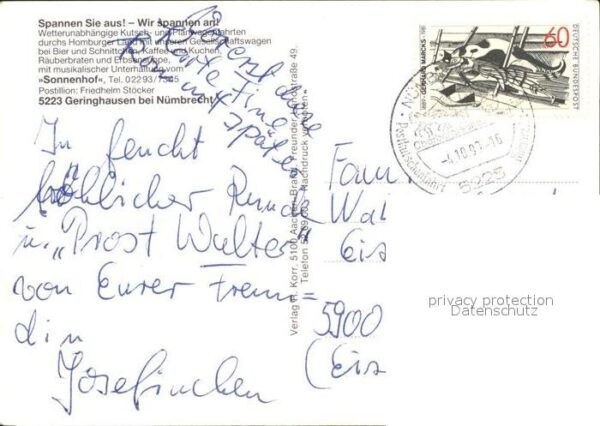 Spannen Sie aus! – Wir spannen an!
Wetterunabhängige Kutsch- und Planwagenfahrten
durchs Homburger Land mit unseren Gesellschaftswagen
bei Bier und Schnittchen, Kaffee und Kuchen,
Räuberbraten und Erbsensuppe,
mit musikalischer Unterhaltung vom
»Sonnenhof«, Tel. 02293/7345
Postillion: Friedhelm Stöcker
5223 Geringhausen bei Nümbrecht
Karte
später
In feucht
fröhlicher Runde
u. „Prost Walter"
von Eurer Freun=
din
Josefinchen
Verlag H. Korr, 5100 Aachen-Brand, Freunder Landstraße 49,
Nachdruck verboten
DEUTSCHE BUNDESPOST
60
1889 GERHARD MARCKS 1981
5225
Fam
Wal
Eis
5900
(Eis
privacy protection
Datenschutz